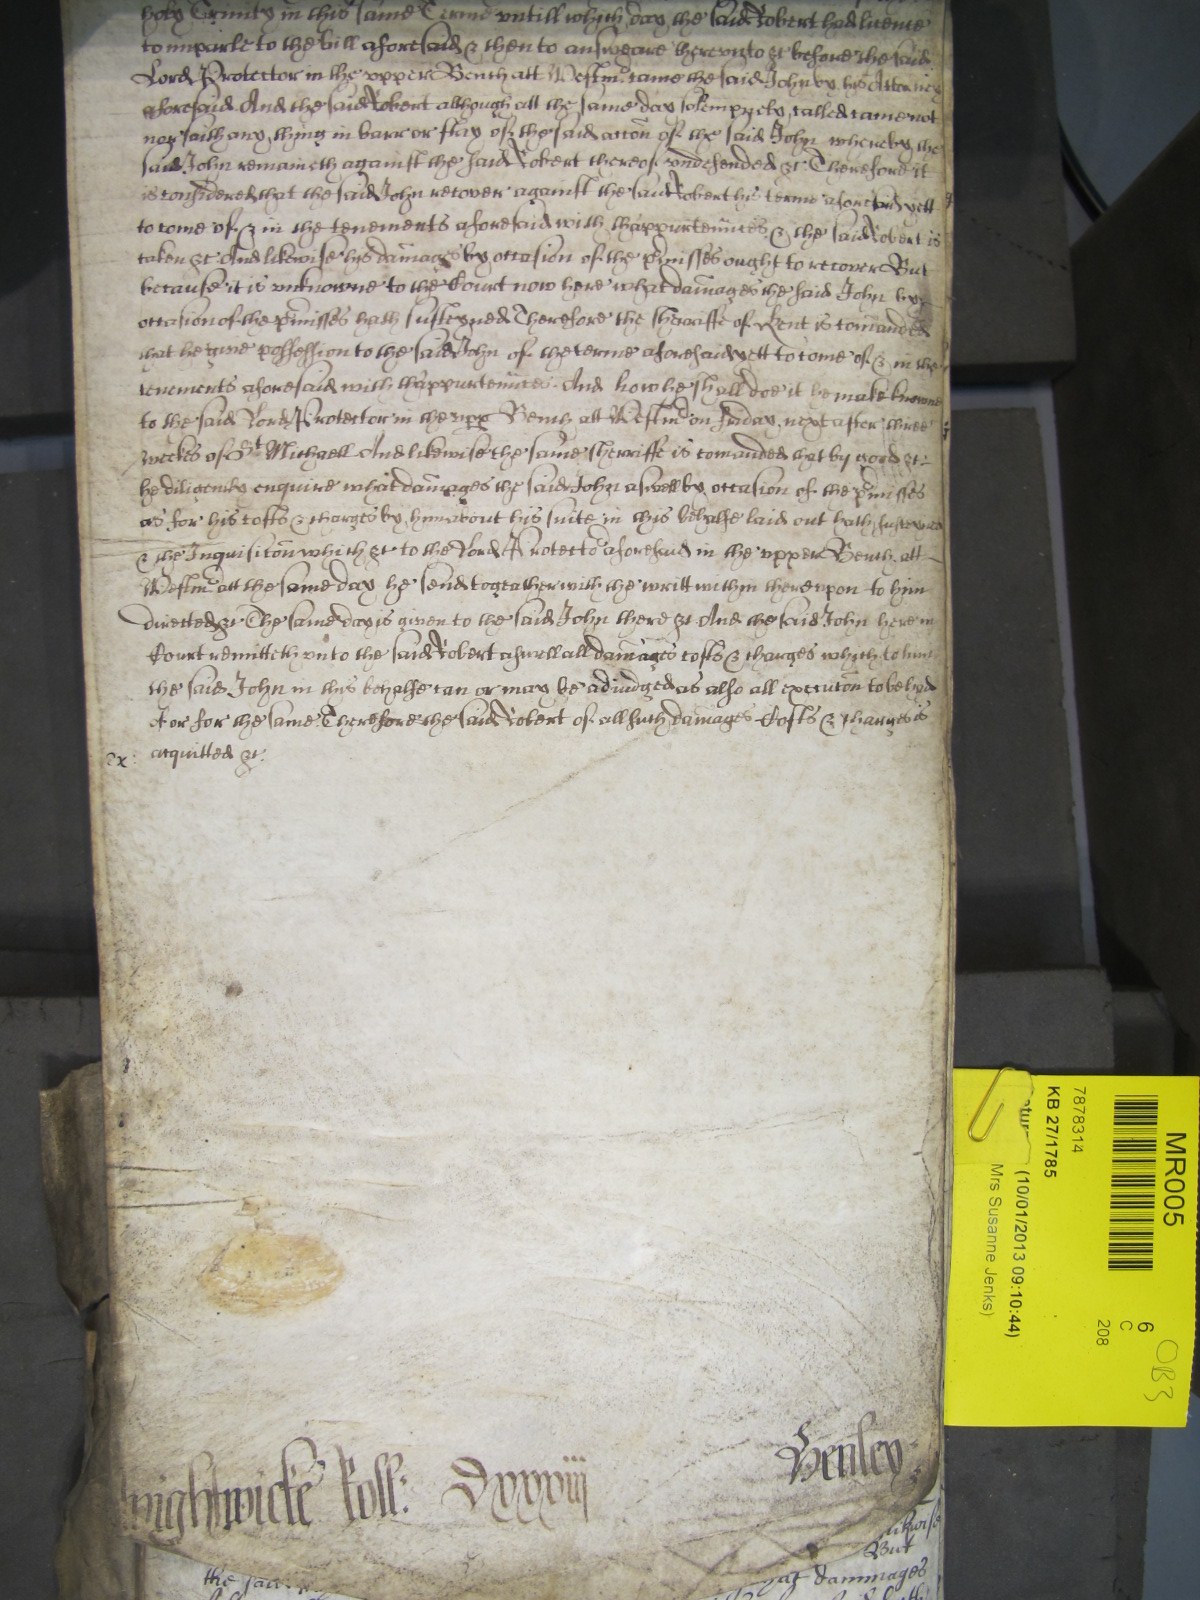 holy Trinity in this same Terme untill which day the said Robert had licence
to imparle to the bill aforesaid & then to answeare thereunto &c before the said
Lord Protector in the upper Bench att Westmr came the said John by his Attorney
aforesaid And the said Robert although att the same day solempnely called came not
nor saith any thing in barr or stay of the said accon of the said John whereby the
said John remaineth against the said Robert thereof undefended &c Therefore it
is considered that the said John recover against the said Robert his terme aforesaid yett
to come of & in the tenements aforesaid with thappurtennces & the said Robert is
taken &c And likewise his damages by occasion of the pmisses ought to recover But
because it is unknowne to the Court now here what damages the said John by
occasion of the pmisses hath susteyned Therefore the sherriffe of Kent is comanded
that he give possession to the said John of the terme aforesaid yett to come of & in the
tenements aforesaid with thappurtennces And how he shall doe it he make knowne
to the said Lord Protector in the upp Bench att Westmr on friday next after three
weekes of St Michaell And likewise the same sherriffe is comanded that by good &c
he diligently enquire what damages the said John aswell by occasion of the pmisses
as for his costs & charges by him about his suite in this behalfe laid out hath susteyned
& the Inquisicon which &c to the Lord Protector aforesaid in the upper Bench att
Westmr att the same day he send togeather with the writt within thereupon to him
directed &c The same day is given to the said John there &c And the said John here in
Court remitteth unto the said Robert aswell all damages costs & charges which to him
the said John in this behalfe can or may be adjudged as also all execucon to be had
for the same Therefore the said Robert of all such damages Costs & charges is
acquitted &c
Ex:
wightwicke Roll: Dxxxiii
Henley
likwise
But
the said
damages
MR005
7878314
KB 27/1785
(10/01/2013 09:10:44)
Mrs Susanne Jenks)
6
C
208
OB3